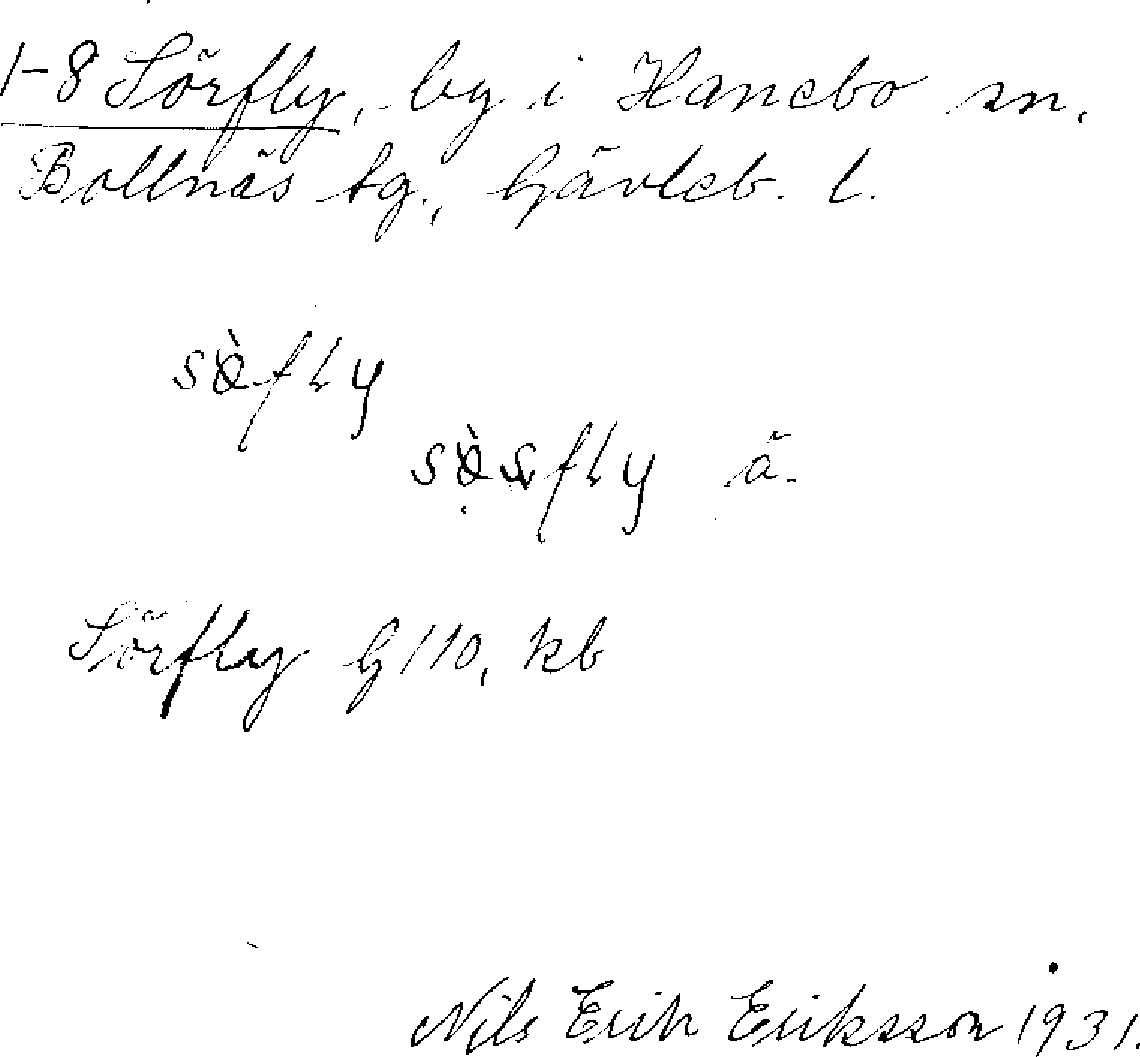 1-8 Sörfly, by i Hanebo sn.
Bollnäs tg., Gävleb. l.
sö̀fly
fly ä.
Sörfly G110, kb
Nils Erik Eriksson 1931.